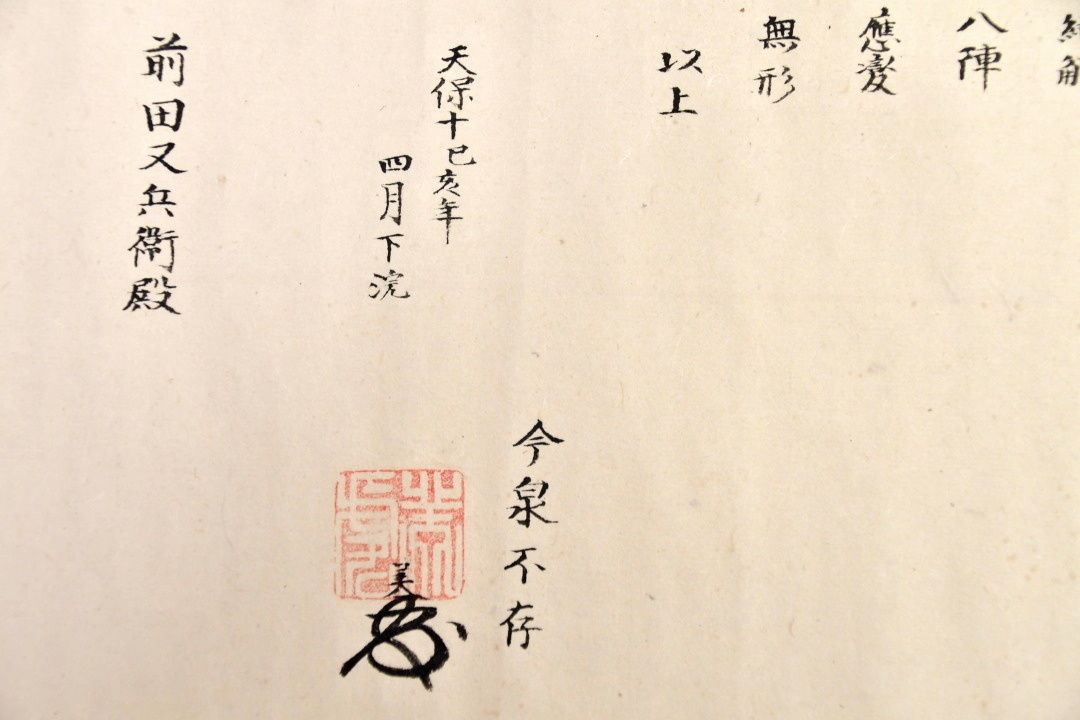 八陣
應變
無形
以上
天保十己亥年
四月下浣
今泉不存
美
前田又兵衛殿